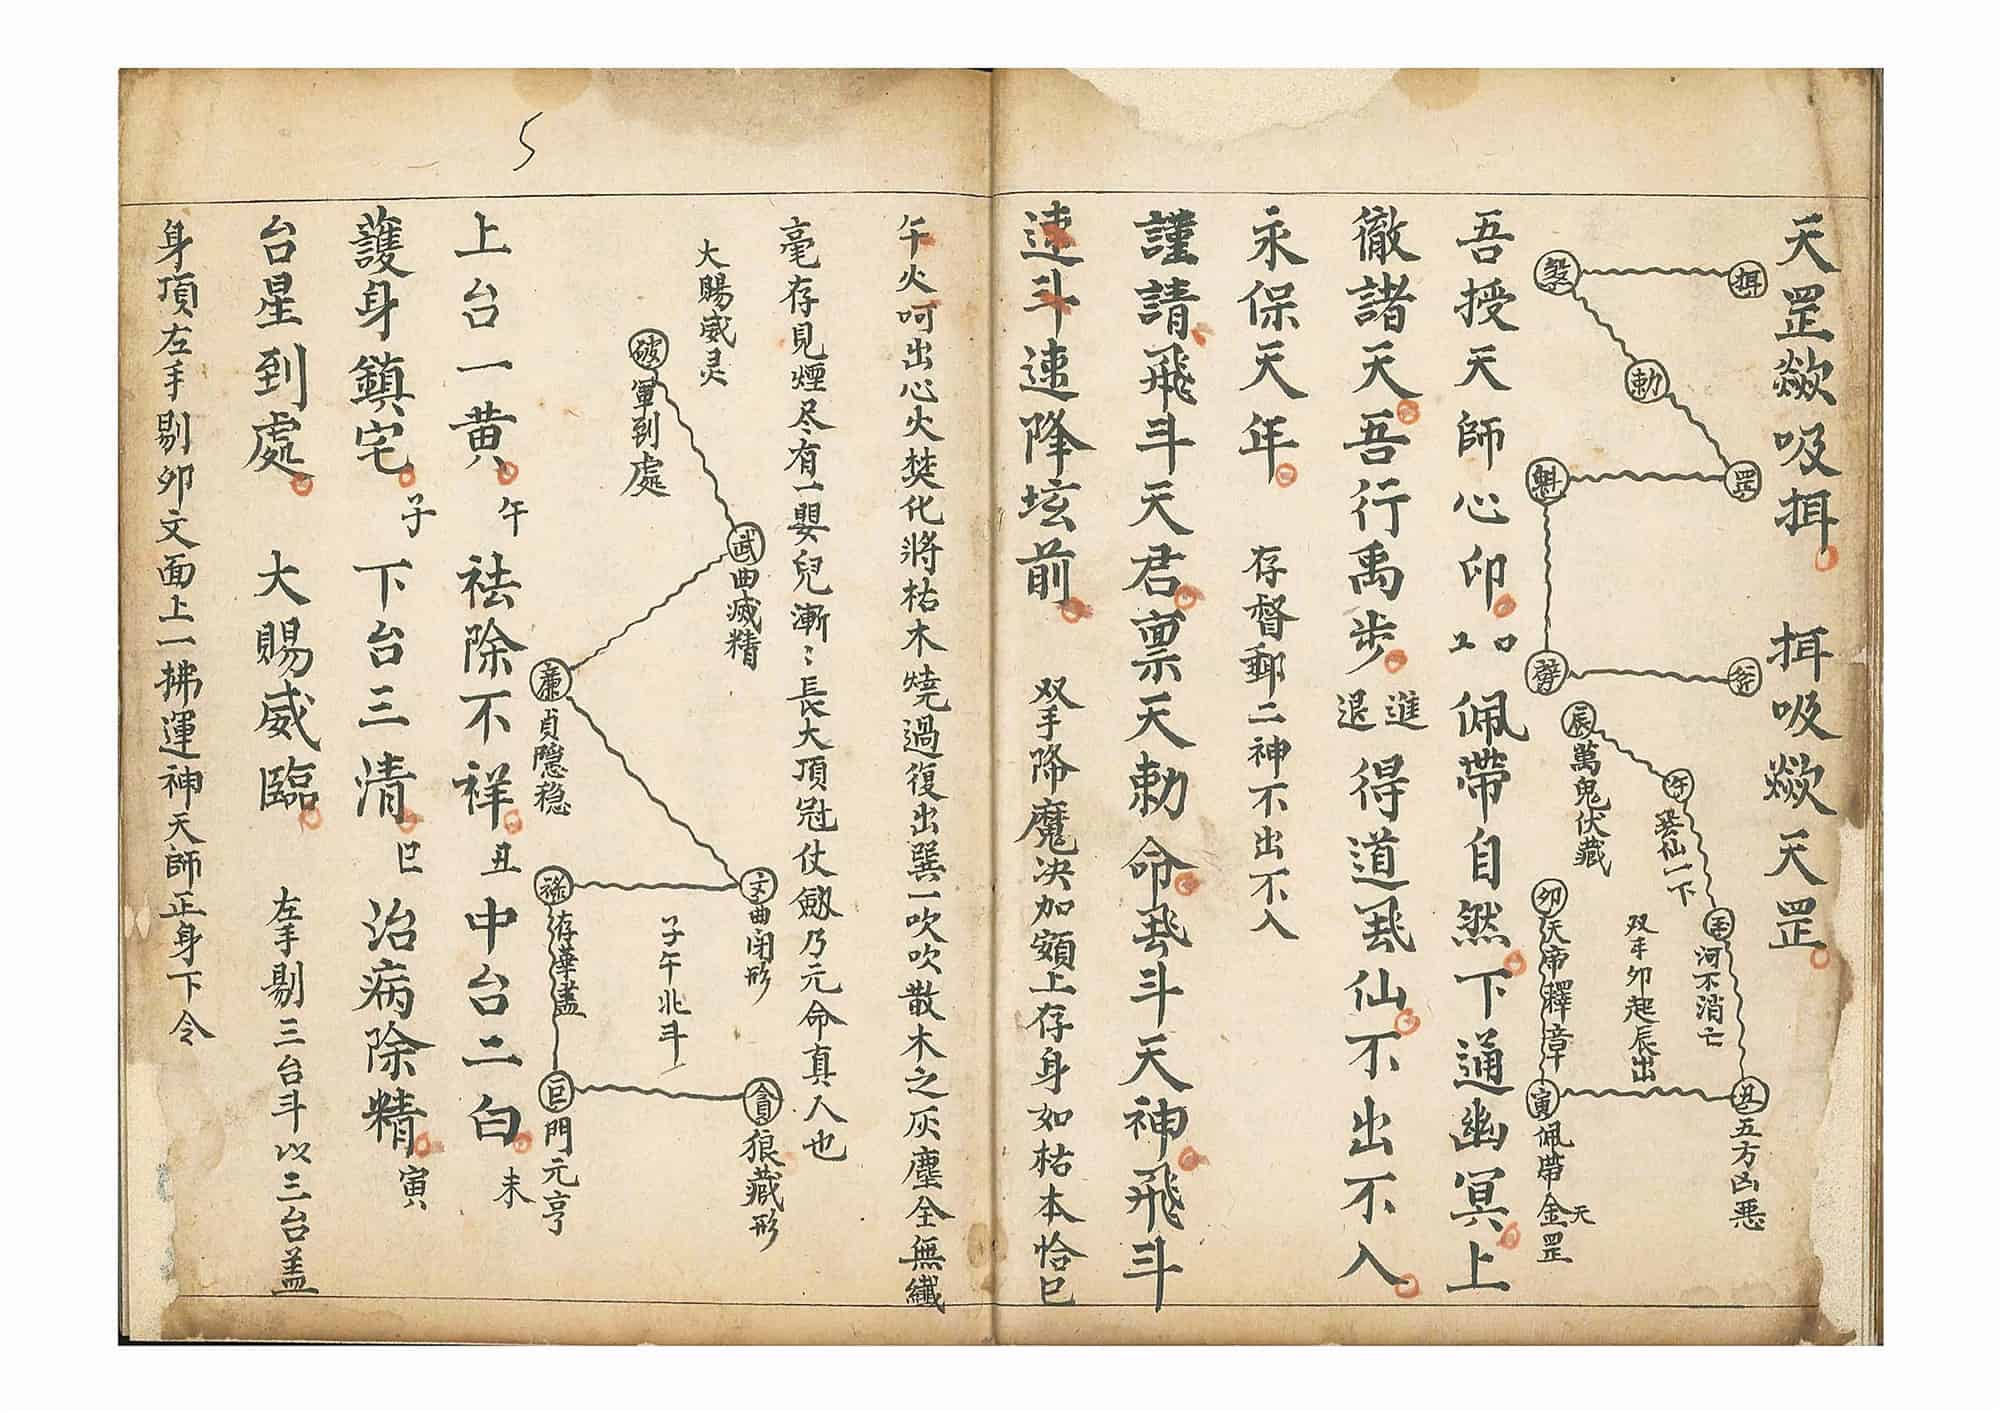 天罡歘吸挕 挕吸歘天罡
挕
勅
罡
魁
辰萬鬼伏藏
午 一下
河不消亡
丑五方凶悪
寅佩帶金天罡
卯天帝釋章
双手卯起辰出
吾授天師心印 佩帶自然下通幽冥上
徹諸天吾行禹步 進退 得道飛仙不出不入
永保天年 存督郵二神不出不入
謹請飛斗天君禀天勅命飛斗天神飛斗
速斗速降坛前 双手降魔决加額上存身如枯本恰巳
午火呵出心火焚化將枯木燒過復出巽一吹吹散木之灰塵全無纖
毫存見煙尽有一嬰兒漸〻長大頂冠仗劔乃元命真人也
大賜威灵
破軍到處
武曲滅精
廉貞隱稳
文曲闭形
祿存華蓋
巨門元亨
貪狼藏形
子午北斗
上台一黄 午 祛除不祥 丑 中台二白 未
護身鎮宅 子 下台三清 巳 治病除精 寅
台星到處 大賜威臨 左手剔三台斗以三台盖
身頂左手剔卯文面上一拂運神天師正身下令
5